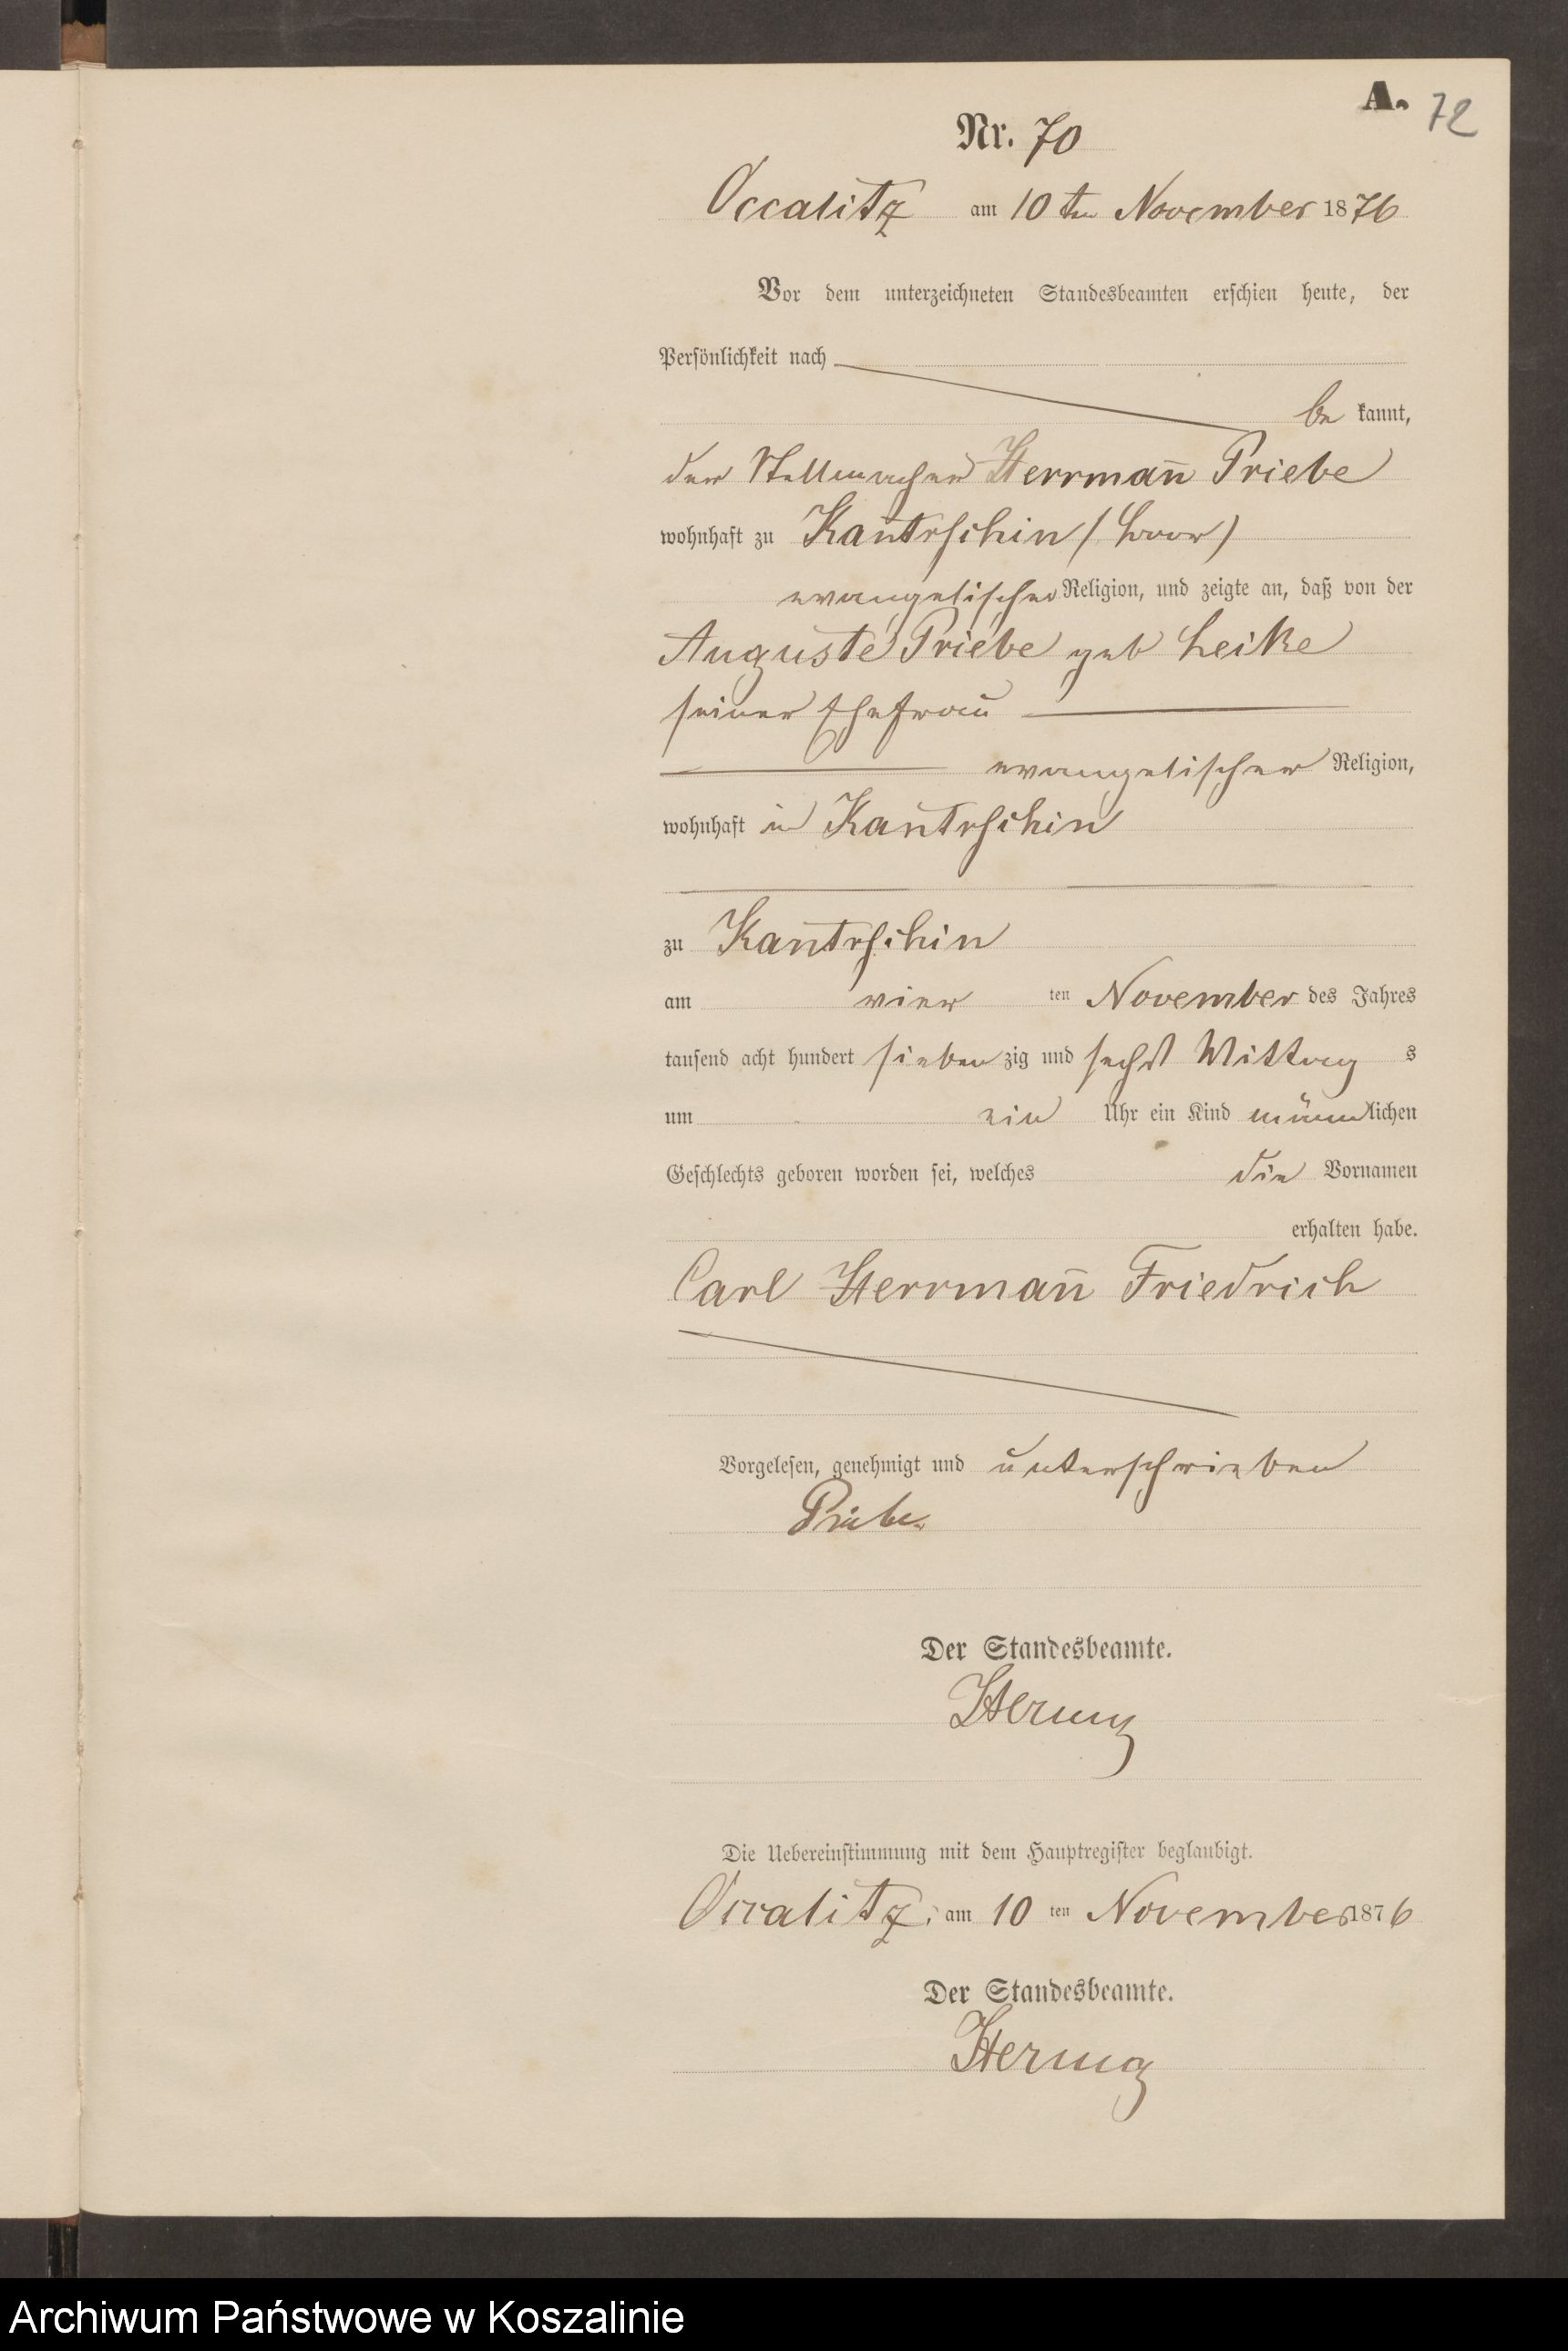 A. 72
Nr. 70
Occalitz am 10ten November 1876
Vor dem unterzeichneten Standesbeamten erschien heute, der
Persönlichkeit nach
be kannt,
der Stellmacher Herrman̄ Priebe
wohnhaft zu Kantrschin
evangelischer Religion, und zeigte an, daß von der
Auguste Priebe geb Leike
seiner Ehefrau
evangelischer Religion,
wohnhaft in Kantrschin
zu Kantrschin
am vier ten November des Jahres
tausend acht hundert sieben zig und sechs Mittag s
um ein Uhr ein Kind männlichen
Geschlechts geboren worden sei, welches die Vornamen
erhalten habe.
Carl Herrman̄ Friedrich
Vorgelesen, genehmigt und unterschrieben
Priebe.
Der Standesbeamte.
Die Uebereinstimmung mit dem Hauptregister beglaubigt.
Occalitz, am 10 ten November 1876
Der Standesbeamte.
Archiwum Państwowe w Koszalinie